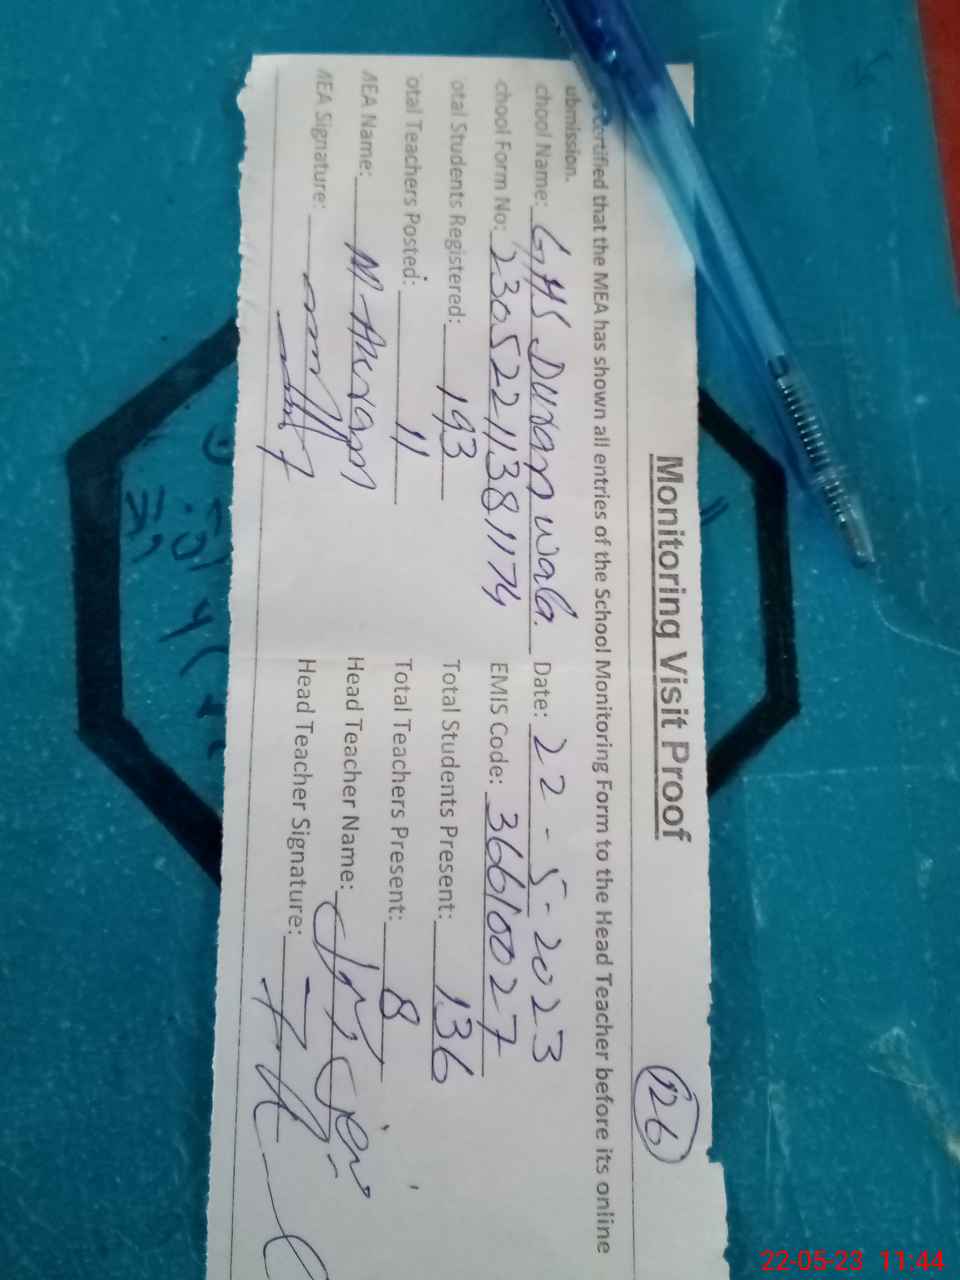 Monitoring Visit Proof
126
certified that the MEA has shown all entries of the School Monitoring Form to the Head Teacher before its online
ubmission.
chool Name: GHS Duranwala. Date: 22-5-2023
chool Form No: 23052211381174 EMIS Code: 36610027
otal Students Registered: 193 Total Students Present: 136
otal Teachers Posted: 11 Total Teachers Present: 8
MEA Name: M Akram Head Teacher Name:
MEA Signature: Head Teacher Signature:
22-05-23 11:44